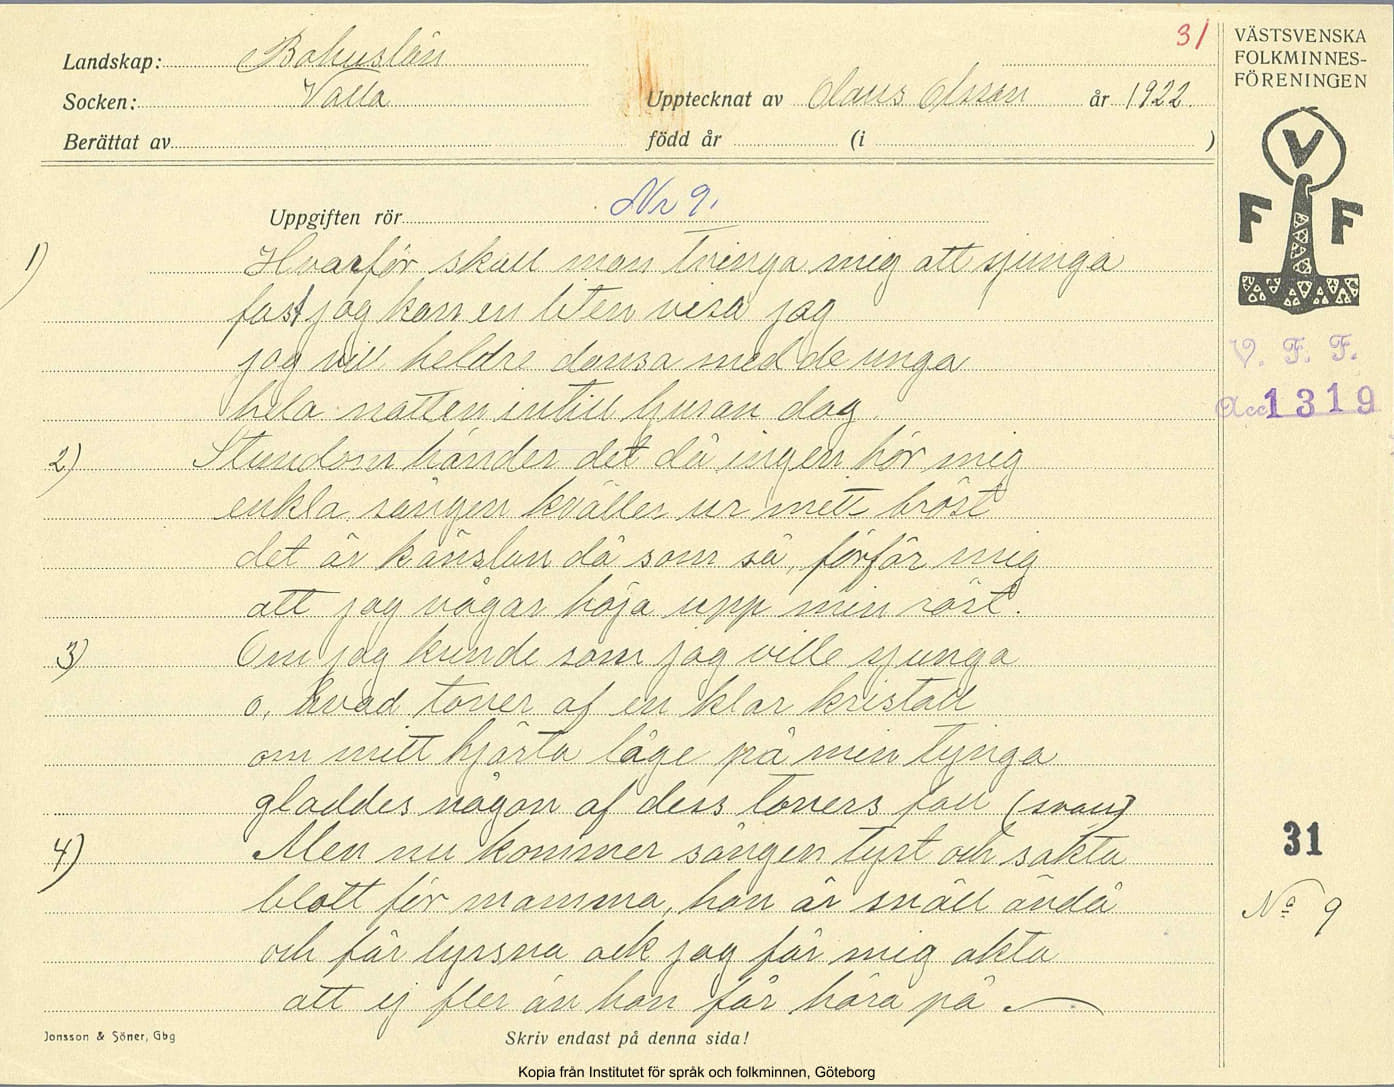 31
Landskap: Bohuslän
Socken: Valla
Upptecknat av Claus Olsson år 1922.
Berättat av
född år (i )
Uppgiften rör Nr 9.
1) Hvarför skall man tvinga mig att sjunga
fast jag kan en liten visa jag
jag vill heldre dansa med de unga
hela natten intill ljusan dag.
2) Stundom händer det då ingen hör mig
enkla sången kväller ur mitt bröst
det är känslan då som så, förför mig
att jag vågar höja upp min röst.
3) Om jag kunde som jag ville sjunga
o, hvad toner af en klar kristall
om mitt hjärta låge på min tynga
gladdes någon af dess toners fall (svall)
4) Men nu kommer sången tyst och sakta
blott för mamma, hon är snäll ändå
och får lyssna ack jag får mig akta
att ej fler än hon får höra på
Jonsson & Söner, Gbg
Skriv endast på denna sida!
VÄSTSVENSKA
FOLKMINNES-
FÖRENINGEN
V
F F
V. F. F.
Acc 1319
31
No 9
Kopia från Institutet för språk och folkminnen, Göteborg